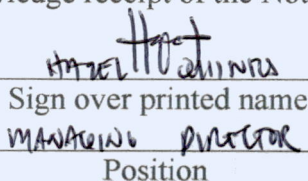 ledge receipt of the Not
HAZEL
Sign over printed name
MANAGING DIRECTOR
Position